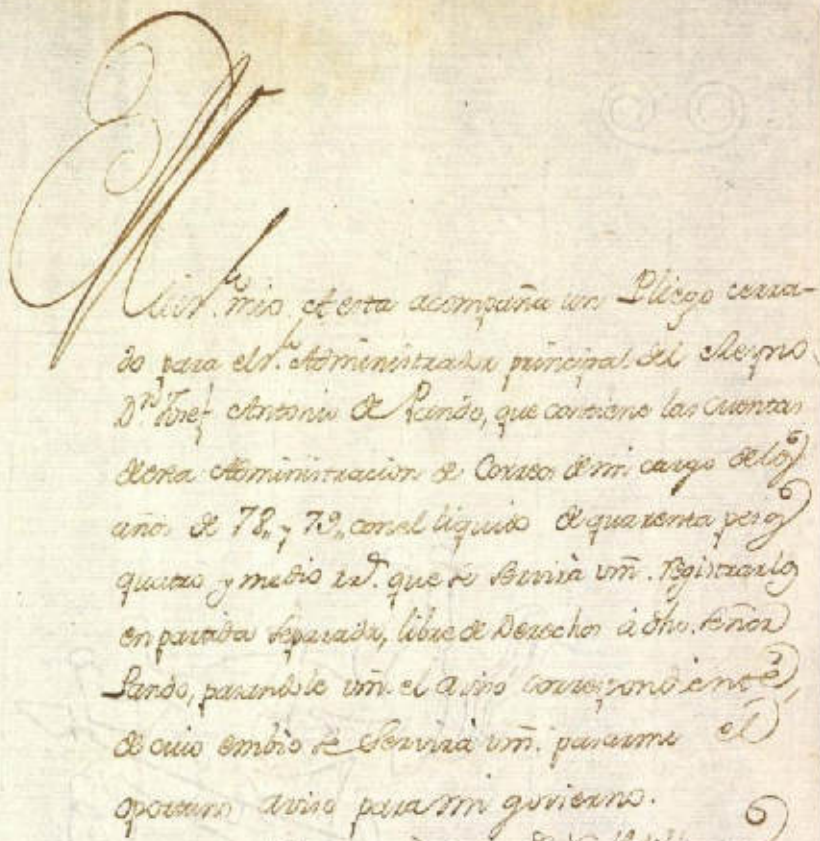 Mui Sr. mio. A esta acompaña un Pliego cerra-
do para el Sr. Administrador principal del Reyno
Dn. Josef Antonio de Pando, que contiene las cuentas
de esta Administracion de Correos de mi cargo de los
años de 78,, y 79,, con el liquido de quarenta pesos
quatro y medio rs. que se servirà vm. registrarlos
en partida separada, libre de Derechos à dho. señor
Pando, pasandole vm. el aviso correspondiente,
de cuio embio se servirà vm. pasarme el
oportuno aviso para mi govierno.